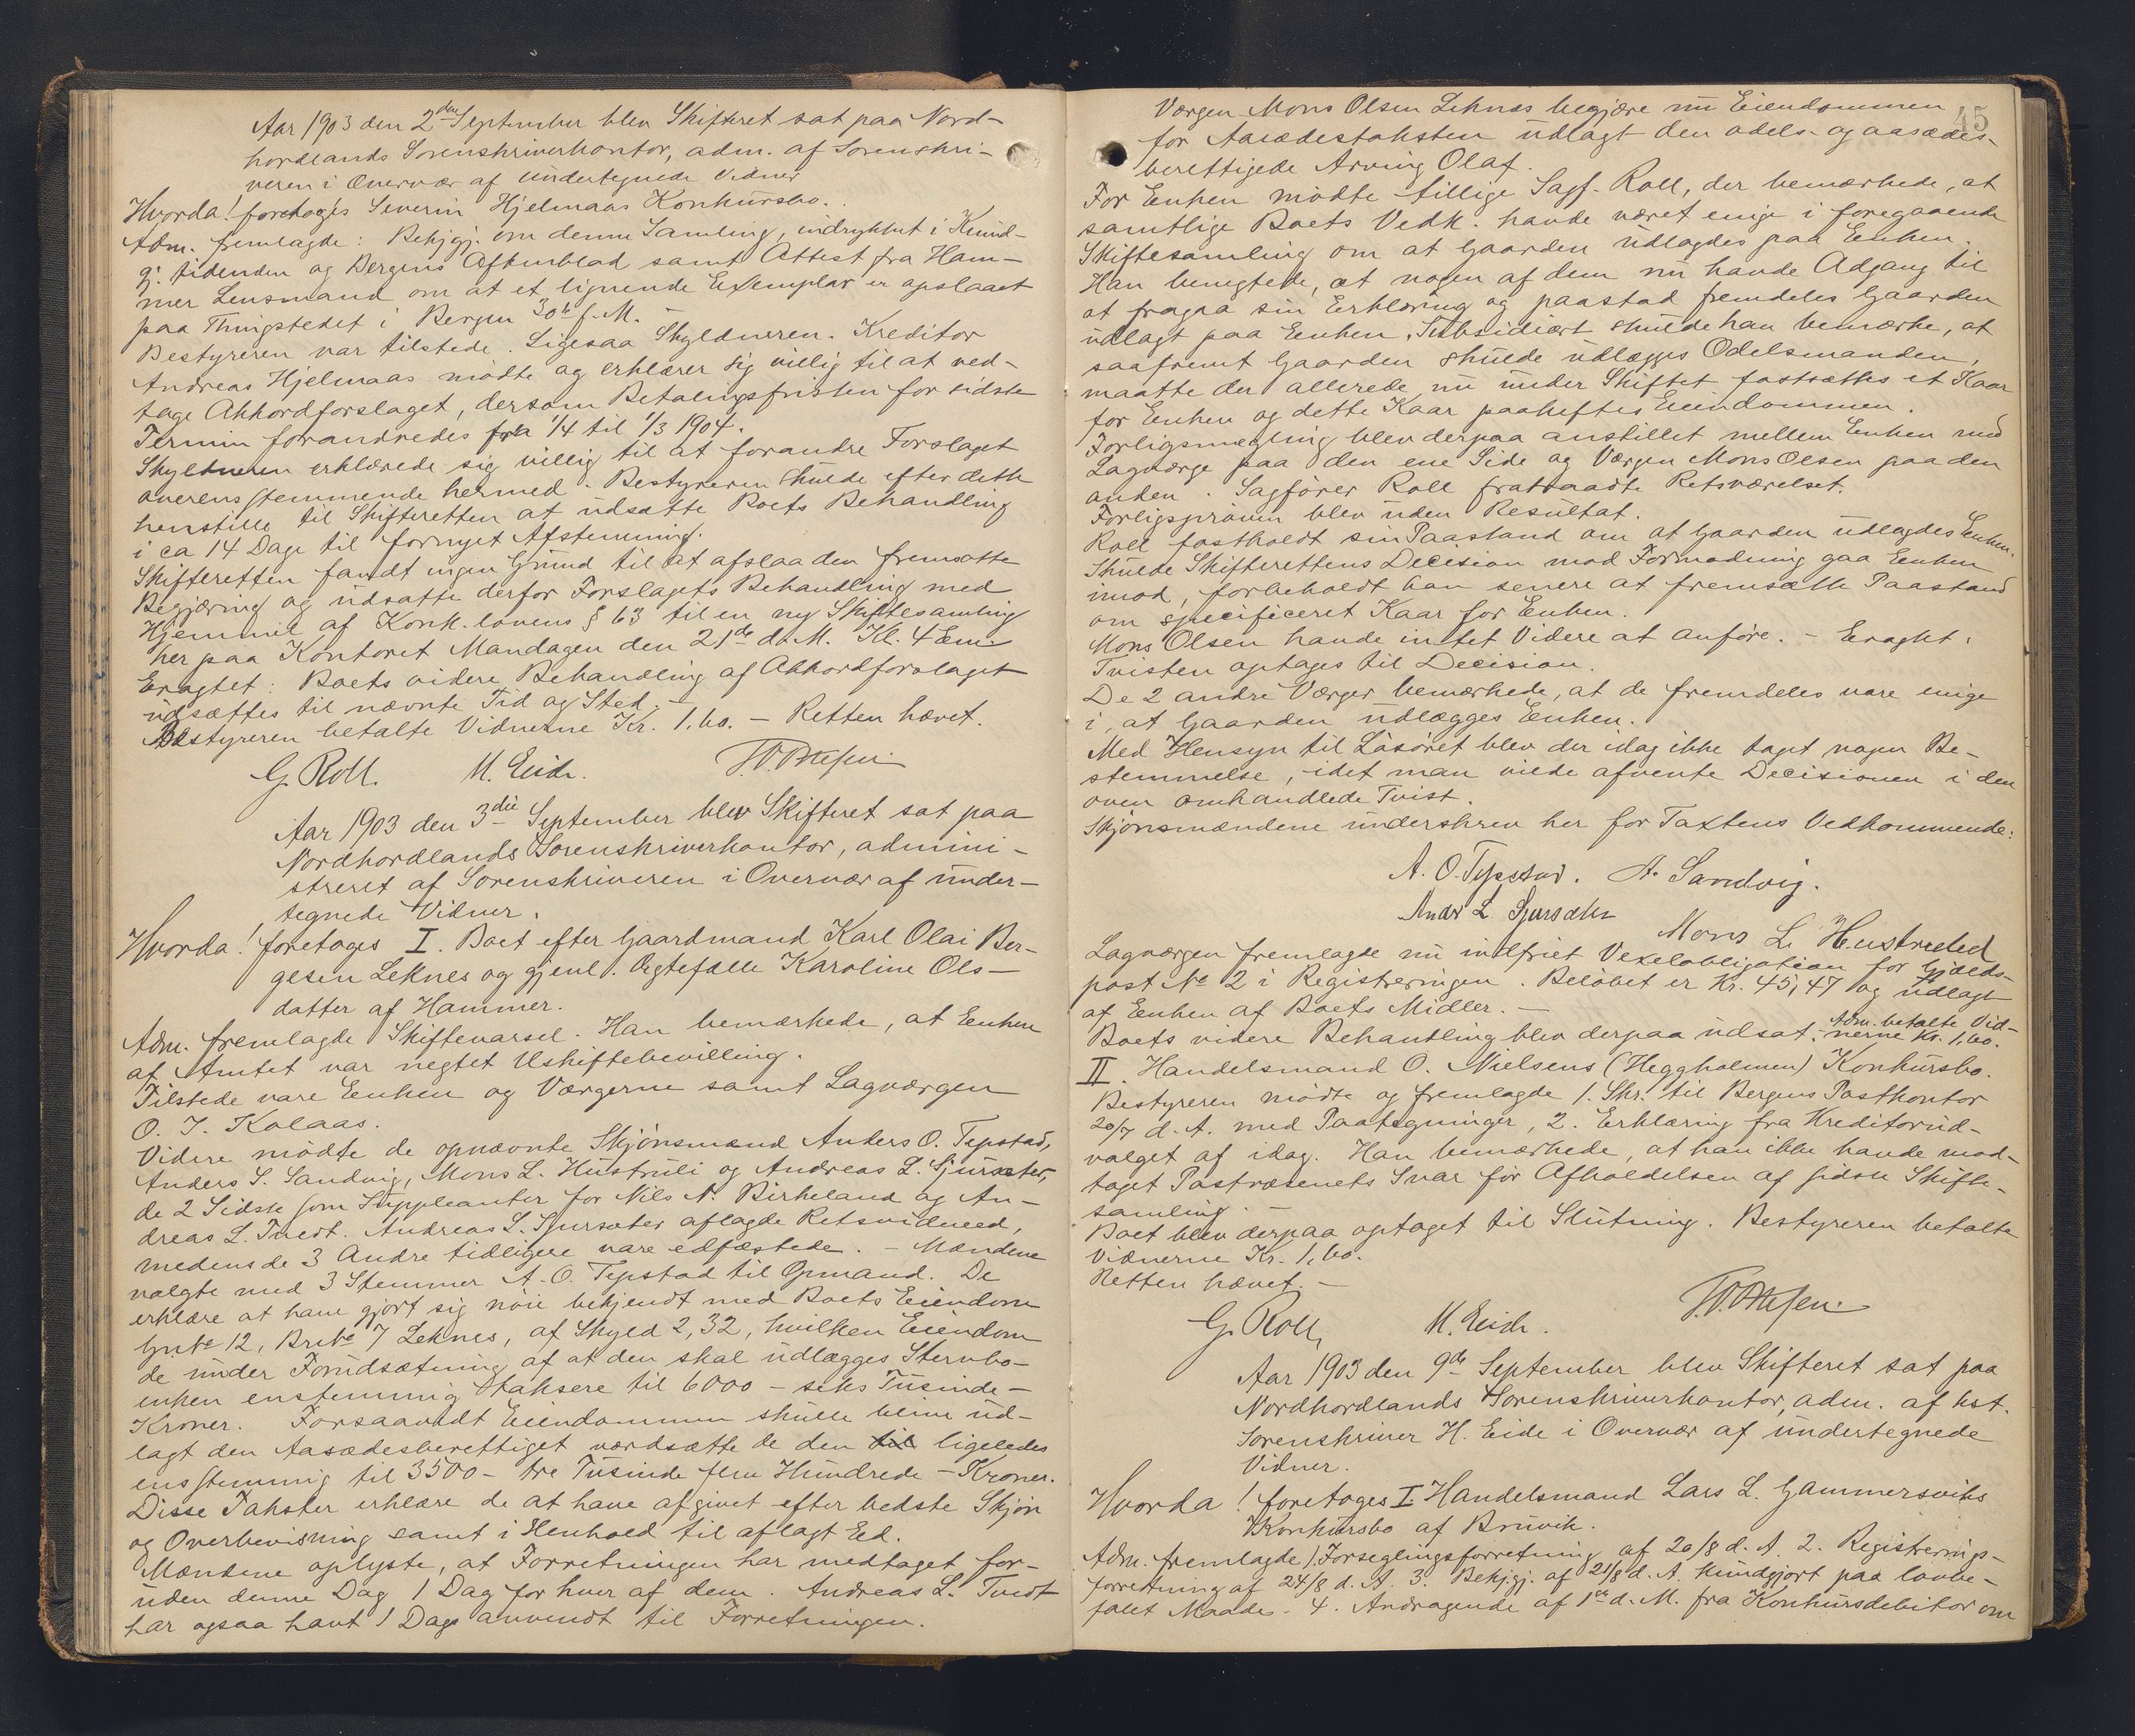 Aar 1903 den 2den September blev Skifteret sat paa Nord-
hordlands Sorenskriverkontor, adm. af Sorenskri-
veren i Overvær af undertegnede Vidner
Hvorda! foretoges Severin Hjelmaas Konkursbo.
Adm. fremlagde: Bekjgj. om denne Samling, indrykket i Kund-
gj. tidenden og Bergens Aftenblad samt Attest fra Ham-
mer Lensmand om at et lignende Exemplar er opslaaet
paa Thingstedet i Bergen 30te f. M. -
Bestyreren var tilstede. Ligesaa Skyldneren. Kreditor
Andreas Hjelmaas mödte og erklærer sig villig til at ved-
tage Akkordforslaget, dersom Betalingsfristen for sidste
Termin forandredes fra 1/4 til 1/3 1904.
Skyldneren erklærede sig villig til at forandre Forslaget
overensstemmende hermed. Bestyreren skulde efter dette
henstille til Skifteretten at udsætte Boets Behandling
i ca 14 Dage til fornyet Afstemning.
Skifteretten fandt ingen Grund til at afslaa den fremsatte
Begjæring og udsatte derfor Forslagets Behandling med
Hjemmel af Konk. lovens § 63 til en ny Skiftesamling
her paa Kontoret Mandagen den 21de d. M. Kl. 4 Em.
Eragtet: Boets videre Behandling af Akkordforslaget
udsættes til nævnte Tid og Sted. -
Bestyreren betalte Vidnerne Kr. 1.60. - Retten hævet.
G. Roll. M. Eide.
Aar 1903 den 3die September blev Skifteret sat paa
Nordhordlands Sorenskriverkontor, admini-
streret af Sorenskriveren i Overvær af under-
tegnede Vidner.
Hvorda! foretoges I. Boet efter Gaardmand Karl Olai Ber-
gesen Leknes og gjenl. Ægtefælle Karoline Ols-
datter af Hammer.
Adm. fremlagde Skiftevarsel. Han bemærkede, at Enken
af Amtet var negtet Uskiftebevilling.
Tilstede vare Enken og Værgerne samt Lagværgen
O. J. Kolaas.
Videre mödte de opnævnte Skjönsmænd Anders O. Tepstad,
Anders S. Sandvig, Mons L. Hustruli og Andreas L. Sjursæter,
de 2 Sidste som Suppleanter for Nils N. Birkeland og An-
dreas L. Tvedt. Andreas L. Sjursæter aflagde Retsvidneed,
medens de 3 Andre tidligere vare edfæstede. - Mændene
valgte med 3 Stemmer A. O. Tepstad til Opmand. De
erklære at have gjört sig nöie bekjendt med Boets Eiendom
Gn. No 12, Br. No 7 Leknes, af Skyld 2,32, hvilken Eiendom
de under Forudsætning af at den skal udlægges Stervbo-
enken enstemmig taksere til 6000 - seks Tusinde -
Kroner. Forsaavidt Eiendommen skulle blive ud-
lagt den Aasædesberettiget værdsætte de den til ligeledes
ensstemmig til 3500 - tre Tusinde fem Hundrede - Kroner.
Disse Takster erklære de at have afgivet efter bedste Skjön
og Overbevisning samt i Henhold til aflagt Ed.
Mændene oplyste, at Forretningen har medtaget for-
uden denne Dag 1 Dag for hver af dem. Andreas L. Tvedt
har ogsaa havt 1 Dag anvendt til Forretningen.
45
Værgen Mons Olsen Leknes begjære nu Eiendommen
for Aasædestaksten udlagt den odels- og aasædes-
berettigede Arving Olaf.
For Enken mödte tillige Sagf. Roll, der bemærkede, at
samtlige Boets Vedk. havde været enige i foregaaende
Skiftesamling om at Gaarden udlagdes paa Enken.
Han benegtede, at nogen af dem nu havde Adgang til
at fragaa sin Erklæring og paastod fremdeles Gaarden
udlagt paa Enken. Subsidiært skulde han bemærke, at
saafremt Gaarden skulde udlægges Odelsmanden,
maatte der allerede nu under Skiftet fastsættes et Kaar
for Enken og dette Kaar paaheftes Eiendommen.
Forligsmægling blev derpaa anstillet mellem Enken med
Lagværge paa den ene Side og Værgen Mons Olsen paa den
anden. Sagförer Roll fratraadte Retsværelset.
Forligspröven blev uden Resultat.
Roll fastholdt sin Paastand om at Gaarden udlagdes Enken.
Skulde Skifterettens Decision mod Formodning gaa Enken
imod, forbeholdt han senere at fremsætte Paastand
om specificeret Kaar for Enken.
Mons Olsen havde intet Videre at anföre. - Eragtet:
Tvisten optages til Decision.
De 2 andre Værger bemærkede, at de fremdeles vare enige
i, at Gaarden udlægges Enken.
Med Hensyn til Lösöret blev der idag ikke taget nogen Be-
stemmelse, idet man vilde afvente Decisionen i den
oven omhandlede Tvist.
Skjönsmændene underskrev her for Taxtens Vedkommende:
A. O. Tepstad. A. Sandvig.
Andr L Sjursæter Mons L. Hustruled
Lagværgen fremlagde nu indfriet Vexelobligation for Gjælds-
post No 2 i Registreringen. Belöbet er Kr. 45,47 og udlagt
af Enken af Boets Midler. -
Boets videre Behandling blev derpaa udsat. - Adm. betalte Vid-
nerne Kr. 1,60.
II. Handelsmand O. Nielsens (Heggholmen) Konkursbo.
Bestyreren mödte og fremlagde 1. Skr. til Bergens Postkontor
20/7 d. A. med Paategninger, 2. Erklæring fra Kreditorud-
valget af idag. Han bemærkede, at han ikke havde mod-
taget Postvæsenets Svar för Afholdelsen af sidste Skifte-
samling. -
Boet blev derpaa optaget til Slutning. Bestyreren betalte
Vidnerne Kr. 1,60.
Retten hævet. -
G. Roll, M. Eide.
Aar 1903 den 9de September blev Skifteret sat paa
Nordhordlands Sorenskriverkontor, adm. af kst.
Sorenskriver H. Eide i Overvær af undertegnede
Vidner.
Hvorda! foretoges I. Handelsmand Lars L. Gammersviks
Konkursbo af Bruvik.
Adm. fremlagde 1. Forseglingsforretning af 20/8 d. A. 2. Registrerings-
forretning af 24/8 d. A. 3. Bekjgj. af 21/8 d. A. kundgjort paa lovbe-
falet Maade. 4. Andragende af 1ste d. M. fra Konkursdebitor om